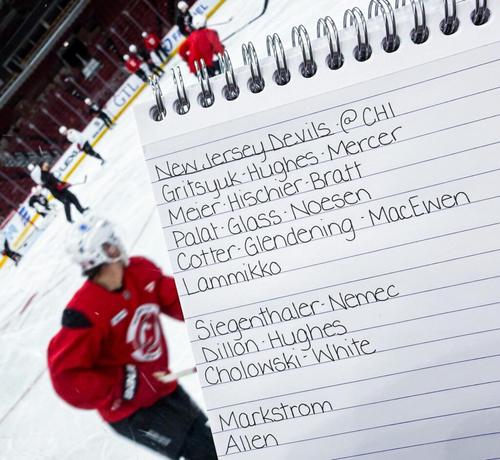 New Jersey Devils · @ CHI
Gritsyuk · Hughes · Mercer
Meier · Hischier · Bratt
Palat · Glass · Noesen
Cotter · Glendening · MacEwen
Lammikko
Siegenthaler · Nemec
Dillon · Hughes
Cholowski · White
Markstrom
Allen
GTL